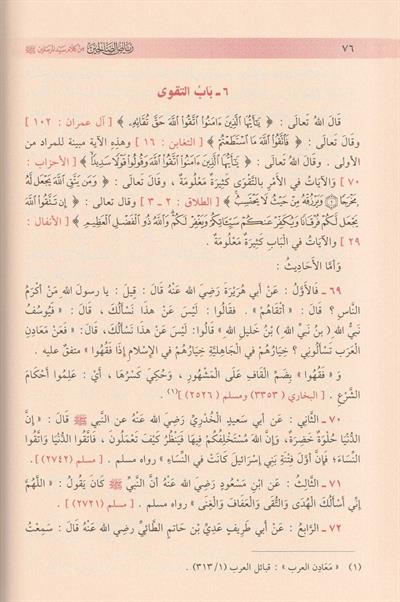 ٧٦ رياض الصالحين من كلام سيد المرسلين ﷺ
٦ ـ بَابُ التقوى
قَالَ اللهُ تَعَالَى : ﴿ يَٰٓأَيُّهَا ٱلَّذِينَ ءَامَنُوا۟ ٱتَّقُوا۟ ٱللَّهَ حَقَّ تُقَاتِهِۦ ﴾ [ آل عمران : ١٠٢ ]
وقَالَ تَعَالَى : ﴿ فَٱتَّقُوا۟ ٱللَّهَ مَا ٱسْتَطَعْتُمْ ﴾ [ التغابن : ١٦ ] وهذِهِ الآية مبينة للمراد من
الأولى . وقَالَ اللهُ تَعَالَى : ﴿ يَٰٓأَيُّهَا ٱلَّذِينَ ءَامَنُوا۟ ٱتَّقُوا۟ ٱللَّهَ وَقُولُوا۟ قَوْلًا سَدِيدًا ﴾ [ الأحزاب :
٧٠ ] وَالآيَاتُ في الأَمْرِ بِالتَّقْوَى كَثِيرَةٌ مَعْلُومَةٌ ، وقَالَ تَعَالَى : ﴿ وَمَن يَتَّقِ ٱللَّهَ يَجْعَل لَّهُۥ
مَخْرَجًا ۝ وَيَرْزُقْهُ مِنْ حَيْثُ لَا يَحْتَسِبُ ﴾ [ الطلاق : ٢ ـ ٣ ] وقال تعالى : ﴿ إِن تَتَّقُوا۟ ٱللَّهَ
يَجْعَل لَّكُمْ فُرْقَانًا وَيُكَفِّرْ عَنكُمْ سَيِّـَٔاتِكُمْ وَيَغْفِرْ لَكُمْ وَٱللَّهُ ذُو ٱلْفَضْلِ ٱلْعَظِيمِ ﴾ [ الأنفال :
٢٩ ] والآيَاتُ في الْبَابِ كَثِيرَةٌ مَعْلُومَةٌ .
وَأَمَّا الأَحَادِيثُ :
٦٩ ـ فَالأَوَّلُ : عَنْ أبي هُرَيْرَةَ رَضِيَ اللهُ عَنْهُ قَالَ : قِيلَ : يا رسولَ اللهِ مَن أكْرَمُ
النَّاسِ ؟ قَالَ : « أتْقَاهُمْ » . فقَالُوا : لَيْسَ عَنْ هذَا نَسْأَلُكَ ، قَالَ : « فَيُوسُفُ
نَبِيُّ اللهِ ( بنُ نَبيِّ اللهِ ) بْنُ خَلِيلِ اللهِ » قَالُوا: لَيْسَ عَنْ هذَا نَسْأَلُكَ، قَالَ: « فَعَنْ مَعَادِنِ
العَرَبِ تَسْأَلُونِي ؟ خِيَارُهُمْ في الْجَاهِلِيَّةِ خِيَارُهُمْ في الإسْلَامِ إذَا فَقُهُوا » متفق عليه .
وَ « فَقُهُوا » بِضَمِّ القَافِ عَلَى الْمَشْهُورِ ، وَحُكِيَ كَسْرُهَا ، أيْ : عَلِمُوا أحْكَامَ
الشَّرْعِ . [ البخاري ( ٣٣٥٣ ) ومسلم ( ٢٥٢٦ ) ](١) .
٧٠ ـ الثَّانِي : عَنْ أبي سَعِيدٍ الْخُدْرِيِّ رَضِيَ الله عنهُ عن النبي ﷺ قَالَ : « إنَّ
الدُّنْيَا حُلْوَةٌ خَضِرَةٌ، وإنَّ اللهَ مُسْتَخْلِفُكُمْ فِيهَا فَيَنْظُرُ كَيْفَ تَعْمَلُونَ ، فَاتَّقُوا الدُّنْيَا وَاتَّقُوا
النِّسَاءَ؛ فإنَّ أوَّلَ فِتْنَةِ بَنِي إسْرَائِيلَ كَانَتْ في النِّسَاءِ » رواه مسلم . [ مسلم ( ٢٧٤٢ ) ].
٧١ ـ الثَّالِثُ : عَنِ ابْنِ مَسْعُودٍ رَضِيَ الله عَنْهُ أنَّ النَّبِيَّ ﷺ كَانَ يَقُولُ : « اللَّهُمَّ
إنِّي أَسْأَلُكَ الْهُدَى وَالتُّقَى وَالْعَفَافَ وَالْغِنَى » رواه مسلم . [ مسلم ( ٢٧٢١ ) ] .
٧٢ ـ الرَّابِعُ : عَنْ أبي طَرِيفٍ عَدِيِّ بْنِ حَاتِمٍ الطَّائِيِّ رضي الله عَنْهُ قَالَ : سَمِعْتُ
(١) « مَعَادِن العرب » : قبائل العرب (٣١٣/١) .